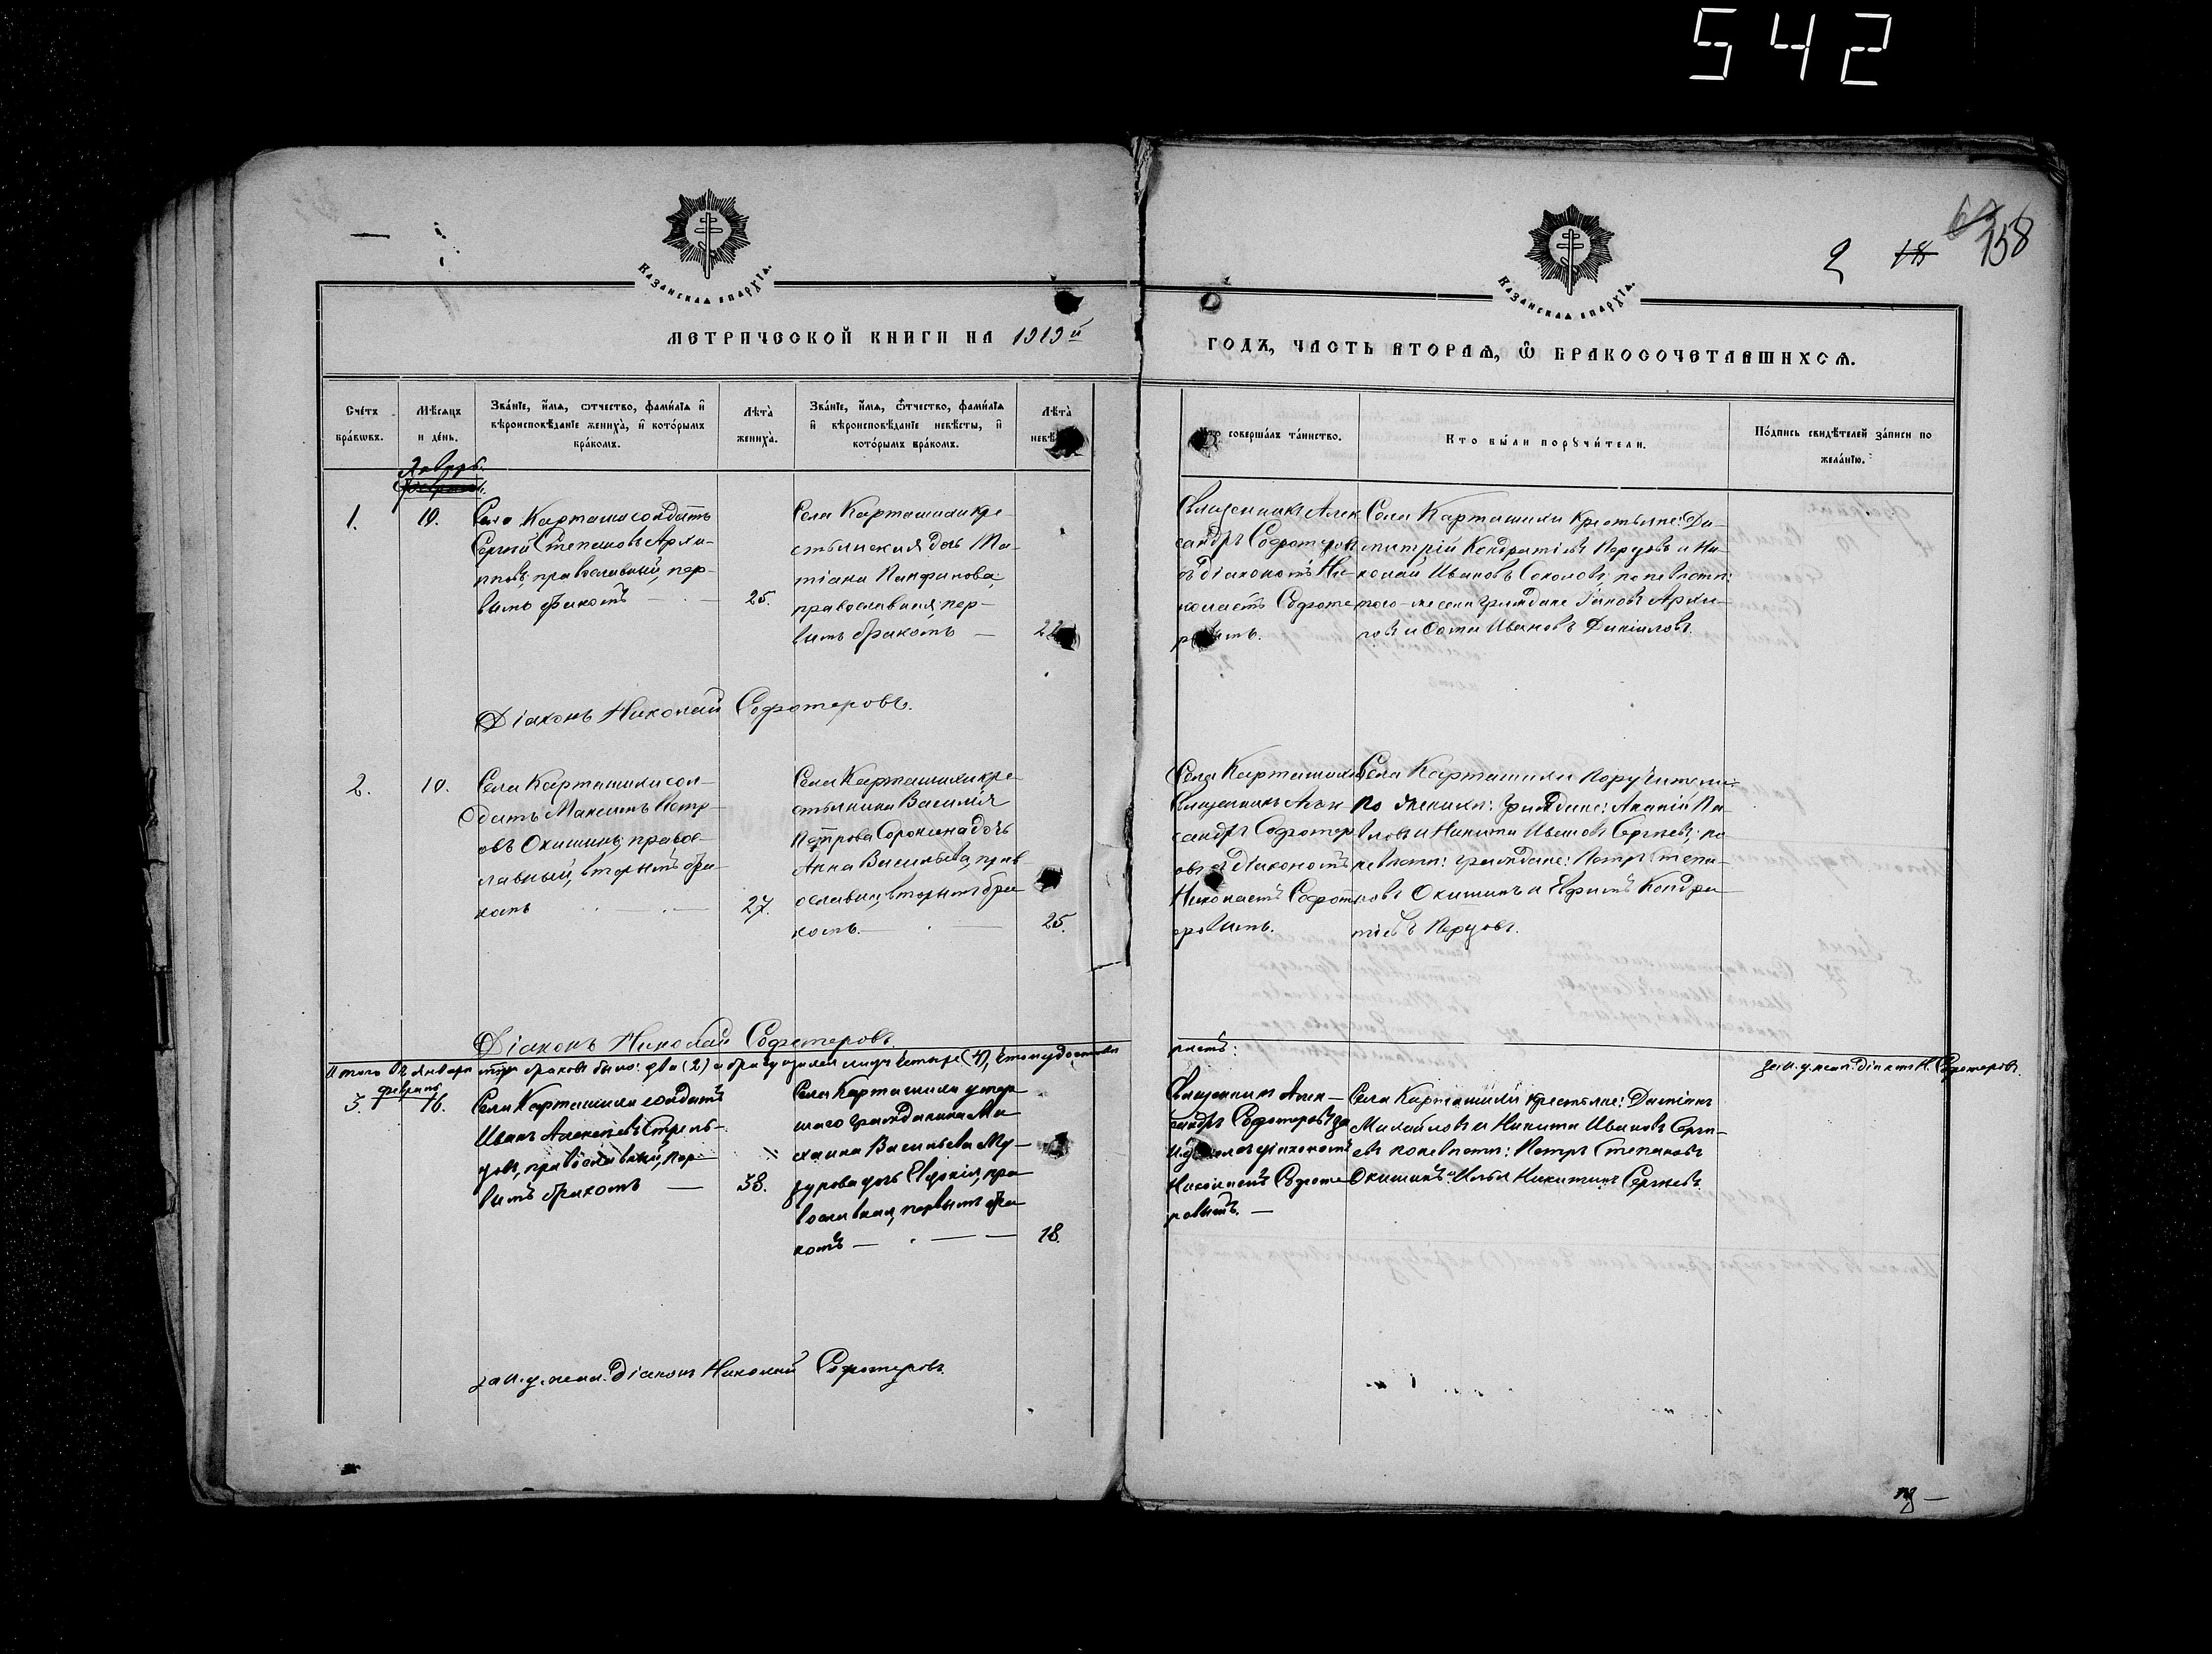 542
2 18 67 158
Казанская епархїѧ.
Казанская епархїѧ.
МЕТРИЧЕСКОЙ КНИГИ НА 1919й
ГОДЪ, ЧАСТЬ ВТОРАѦ, Ѿ БРАКОСОЧЕТАВШИХСѦ.
Счétъ бра́кѡвъ.
Мѣ́сѧцъ и де́нь.
Зва́нїе, и́мѧ, ѻтчество, фами́лїѧ и вѣроисповѣ́данїе жениха̀, и кото́рымъ бра́комъ.
Лѣта̀ жениха̀.
Зва́нїе, и́мѧ, ѻтчество, фами́лїѧ и вѣроисповѣ́данїе невѣ́сты, и кото́рымъ бра́комъ.
Лѣта̀
совершáлъ та́инство.
Кто бы́ли порꙋчи́тели.
По́дпись свидѣ́телей за́писи по жела́нїю.
Январь.
1.
10.
Села Карташихи солдатъ
Сергѣй Степановъ Архи-
повъ, православный, пер-
вымъ бракомъ
25.
Села Карташихи кре-
стьянская дочь Ма-
православная, пер-
вымъ бракомъ —
22
Священникъ Алек
сандръ Софотеров
съ діакономъ Ни-
колаемъ Софоте
Села Карташихи крестьяне: Ди-
митрій Кондратіевъ Перцовъ и Ни-
колай Ивановъ Соколовъ; по невѣстѣ:
того-же села граждане Яковъ Архи-
повъ и Фома Ивановъ Даниловъ.
Діаконъ Николай Софотеровъ.
2.
10.
Села Карташихи сол-
датъ Максимъ Петр-
овъ Окишинъ, правос-
лавный, вторымъ бра-
комъ
27.
Села Карташихи кре-
стьянина Василія
Петрова Сорокина дочь
Анна Васильева, прав-
ославная, вторымъ бра-
комъ.
25.
Села Карташихи
Священникъ Алек-
сандръ Софотер
овъ съ Діакономъ
Николаемъ Софот
еровымъ.
Села Карташихи Поручители:
по женихѣ: граждане: Ананій Па-
вловъ и Никита Ивановъ Сергѣевъ; по
невѣстѣ: граждане: Петръ Степа-
новъ Окишинъ и Ефимъ Кондра-
тіевъ Перцовъ.
Діаконъ Николай Софотеровъ.
Итого въ Январѣ браковъ было: два (2) а лицъ четыре (4), что и удостовѣ-
ряемъ:
за и. д. псал. діаконъ Н. Софотеровъ.
Февраль
3.
16.
Села Карташихи солдатъ
Иванъ Алексѣевъ Стрѣль-
цовъ, православный, пер-
вымъ бракомъ —
38.
Села Карташихи умер-
шаго гражданина Ми-
хаила Васильева Му-
зурова дочь Евдокія, пра-
вославная, первымъ бра-
комъ —
18.
Священникъ Алек-
сандръ Софотеровъ за
діакономъ
Николаемъ Софоте
ровымъ. —
Села Карташихи крестьяне: Даміанъ
Михайловъ и Никита Ивановъ Серге-
евъ по невѣстѣ: Петръ Степановъ
Окишинъ и Илья Никитинъ Сергѣевъ.
за и. д. псал. Діаконъ Николай Софотеровъ.